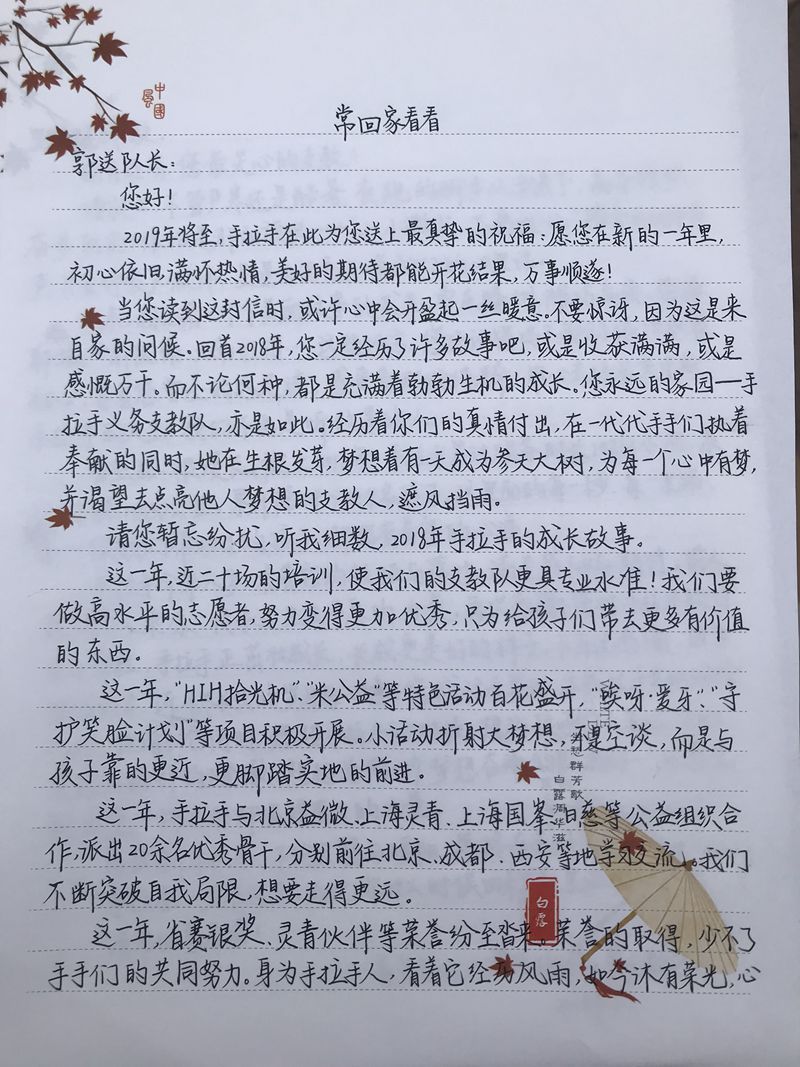 中國風
常回家看看
郭送队长：
您好！
2019年将至，手拉手在此为您送上最真挚的祝福：愿您在新的一年里，
初心依旧，满怀热情，美好的期待都能开花结果，万事顺遂！
当您读到这封信时，或许心中会开盈起一丝暖意。不要惊讶，因为这是来
自家的问候。回首2018年，您一定经历了许多故事吧，或是收获满满，或是
感慨万千。而不论何种，都是充满着勃勃生机的成长。您永远的家园——手
拉手义务支教队，亦是如此。经历着你们的真情付出，在一代代手手们执着
奉献的同时，她在生根发芽，梦想着有一天成为参天大树，为每一个心中有梦，
并渴望去点亮他人梦想的支教人，遮风挡雨。
请您暂忘纷扰，听我细数，2018年手拉手的成长故事。
这一年，近二十场的培训，使我们的支教队更具专业水准！我们要
做高水平的志愿者，努力变得更加优秀，只为给孩子们带去更多有价值
的东西。
这一年，“HIH拾光机”、“米公益”等特色活动百花盛开，“唉呀·爱牙”、“守
护笑脸计划”等项目积极开展。小活动折射大梦想，不是空谈，而是与
孩子靠的更近，更脚踏实地的前进。
这一年，手拉手与北京益微、上海灵青、上海国峯、日慈等公益组织合
作，派出20余名优秀骨干，分别前往北京、成都、西安等地学习交流。我们
不断突破自我局限，想要走得更远。
这一年，省赛银奖、灵青伙伴等荣誉纷至沓来。荣誉的取得，少不了
手手们的共同努力。身为手拉手人，看着它经历风雨，如今沐有荣光，心
群芳歇
白露凋华滋
白露